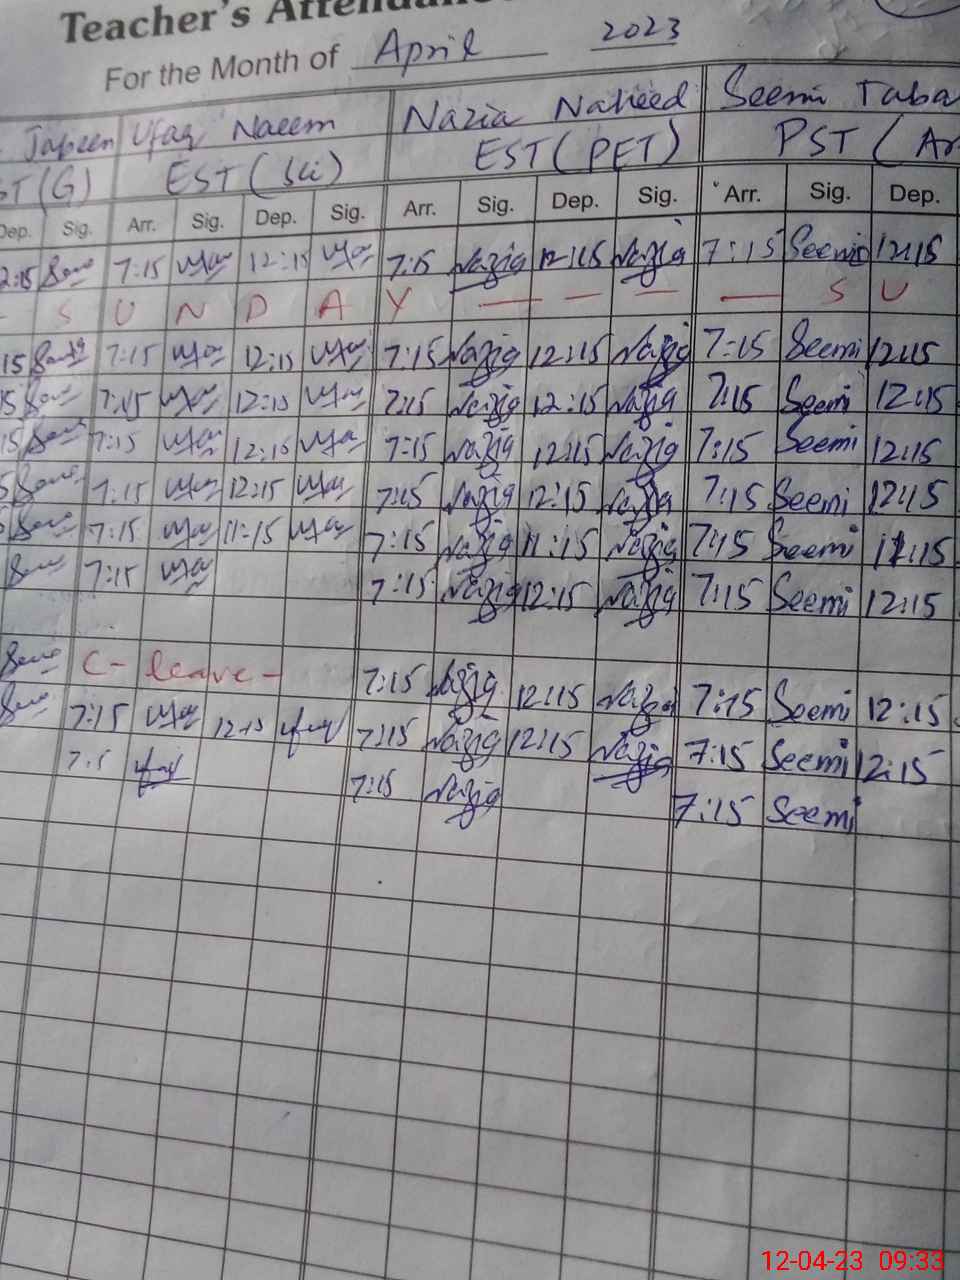 Teacher's Attendanc
For the Month of April 2023
Jabeen Ufaq Naeem Nazia Naheed Seemi Taba
ST (G) EST (Sci) EST (PET) PST (Ar
Dep. Sig. Arr. Sig. Dep. Sig. Arr. Sig. Dep. Sig. Arr. Sig. Dep.
2:15 7:15 12:15 7:15 Nazia 12:15 Nazia 7:15 Seemi 12:15
- S U N D A Y — — — — S U
15 7:15 12:15 7:15 Nazia 12:15 Nazia 7:15 Seemi 12:15
15 7:15 12:15 7:15 Nazia 12:15 Nazia 7:15 Seemi 12:15
15 7:15 12:15 7:15 Nazia 12:15 Nazia 7:15 Seemi 12:15
5 7:15 12:15 7:15 Nazia 12:15 Nazia 7:15 Seemi 12:15
7:15 11:15 7:15 Nazia 11:15 Nazia 7:15 Seemi 11:15
7:15 7:15 Nazia 12:15 Nazia 7:15 Seemi 12:15
C- leave - 7:15 Nazia 12:15 Nazia 7:15 Seemi 12:15
7:15 12:15 7:15 Nazia 12:15 Nazia 7:15 Seemi 12:15
7:15 7:15 Nazia 7:15 Seemi
12-04-23 09:33